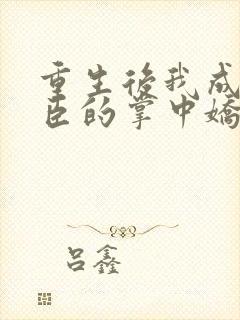 重生後我成
臣的掌中嬌
呂鑫